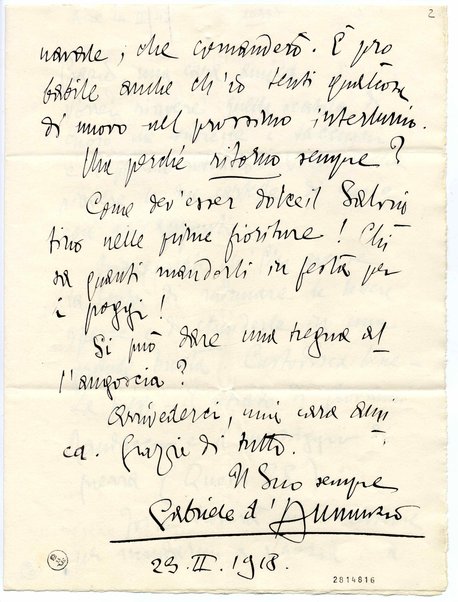 2
navale, che comanderò. È pro
babile anche ch'io tenti qualcosa
di nuovo nel prossimo interlunio.
Ma perché ritorno sempre?
Come dev'esser dolce il Salvia
tino nelle prime fioriture! Chi
sa quanti mandorli in festa per
i poggi!
Si può dare una tregua al
l'angoscia?
Arrivederci, mia cara ami
ca. Grazie di tutto.
Il Suo sempre
Gabriele d'Annunzio
23. II. 1918.
2814816